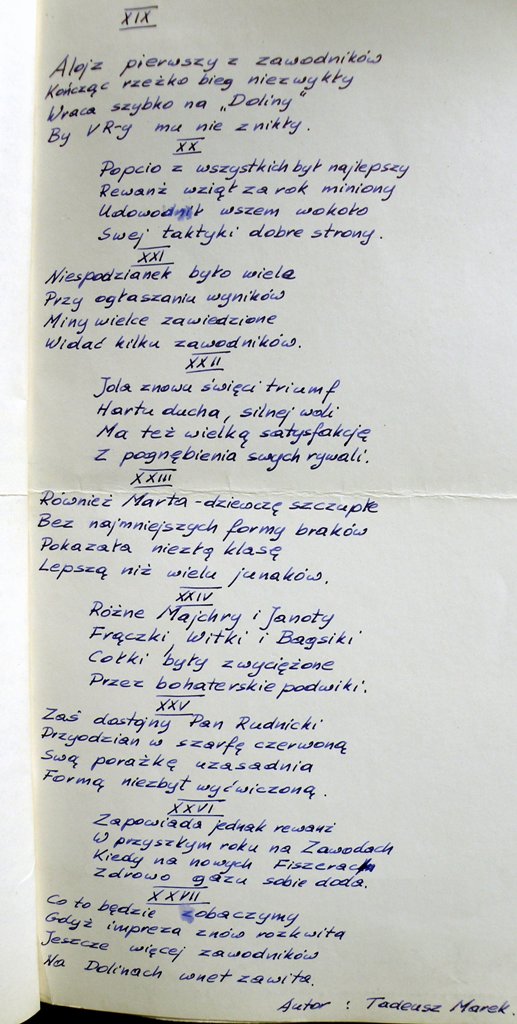 XIX
Alojz pierwszy z zawodników
Kończąc rzeźko bieg niezwykły
Wraca szybko na „Doliny”
By VR-y mu nie znikły.
XX
Popcio z wszystkich był najlepszy
Rewanż wziął za rok miniony
Udowodnił wszem wokoło
Swej taktyki dobre strony.
XXI
Niespodzianek było wiele
Przy ogłaszaniu wyników
Miny wielce zawiedzione
Widać kilku zawodników.
XXII
Jola znowu święci triumf
Hartu ducha, silnej woli
Ma też wielką satysfakcję
Z pognębienia swych rywali.
XXIII
Również Marta - dziewczę szczupłe
Bez najmniejszych formy braków
Pokazała niezłą klasę
Lepszą niż wielu junaków.
XXIV
Różne Majchry i Janoty
Frączki, Witki i Bagsiki
Całki były zwyciężone
Przez bohaterskie podwiki.
XXV
Zaś dostojny Pan Rudnicki
Przyodzian w szarfę czerwoną
Swą porażkę uzasadnia
Formą niezbyt wyćwiczoną.
XXVI
Zapowiada jednak rewanż
W przyszłym roku na Zawodach
Kiedy na nowych Fiszerach
Zdrowo gazu sobie doda.
XXVII
Co to będzie zobaczymy
Gdyż impreza znów rozkwita
Jeszcze więcej zawodników
Na Dolinach wnet zawita.
Autor : Tadeusz Marek.